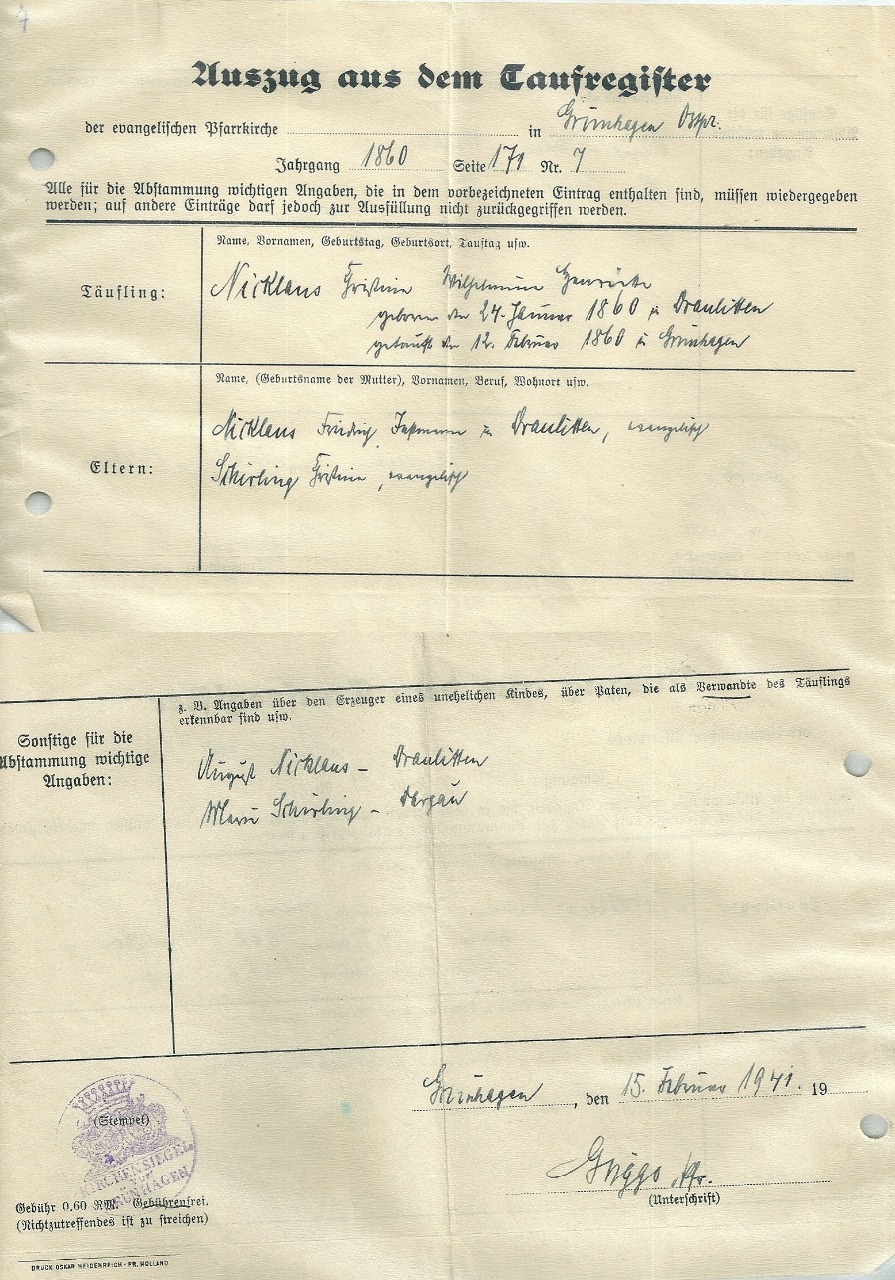 Auszug aus dem Taufregister
der evangelischen Pfarrkirche in Grünhagen Ostpr.
Jahrgang 1860 Seite 171 Nr. 7
Alle für die Abstammung wichtigen Angaben, die in dem vorbezeichneten Eintrag enthalten sind, müssen wiedergegeben
werden; auf andere Einträge darf jedoch zur Ausfüllung nicht zurückgegriffen werden.
Name, Vornamen, Geburtstag, Geburtsort, Tauftag usw.
Täufling:
Nicklaus Wilhelmine Henriette
geboren den 24. Januar 1860 in Draulitten
getauft den 12. Februar 1860 in Grünhagen
Name, (Geburtsname der Mutter), Vornamen, Beruf, Wohnort usw.
Nicklaus Friedrich, in Draulitten, evangelisch
Eltern:
Schirling, evangelisch
z. B. Angaben über den Erzeuger eines unehelichen Kindes, über Paten, die als Verwandte des Täuflings
erkennbar sind usw.
Sonstige für die
Abstammung wichtige
Angaben:
August Nicklaus – Draulitten
Marie Schirling –
Grünhagen, den 15. Februar 1941. 19
(Stempel)
KIRCHENSIEGEL
GRÜNHAGEN
(Unterschrift)
Gebühr 0,60 RM. Gebührenfrei.
(Nichtzutreffendes ist zu streichen)
DRUCK OSKAR WEIDENREICH - PR. HOLLAND